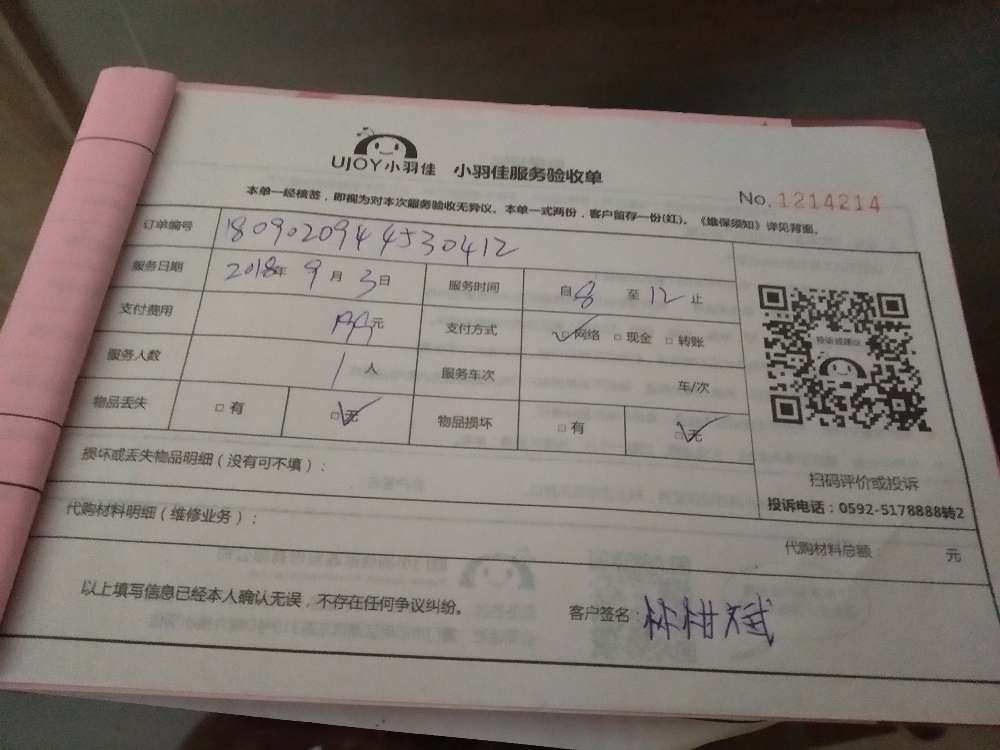 UJOY小羽佳 小羽佳服务验收单
No. 1214214
本单一经核签，即视为对本次服务验收无异议。本单一式两份，客户留存一份(红)。《维保须知》详见背面。
订单编号 1809020944530412
服务日期 2018年 9月 3日 服务时间 自8 至12止
支付费用 元 支付方式 网络 □ 现金 □ 转账
服务人数 1人 服务车次 车/次
物品丢失 □ 有 □ 无 物品损坏 □ 有 □ 无
投诉或建议
扫码评价或投诉
投诉电话：0592-5178888转2
损坏或丢失物品明细（没有可不填）：
代购材料明细（维修业务）：
代购材料总额： 元
以上填写信息已经本人确认无误，不存在任何争议纠纷。 客户签名：林柑斌